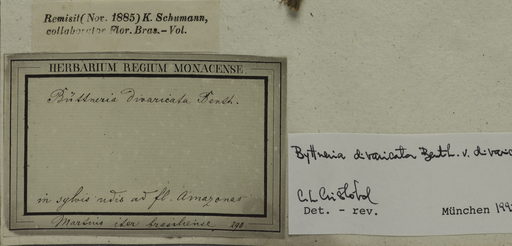 Remisit (Nov. 1885) K. Schumann,
collaborator Flor. Bras.-Vol.
HERBARIUM REGIUM MONACENSE.
Büttneria divaricata Benth.
in sylvis udis ad fl. Amazonas
Martius iter brasiliense.
Byttneria divaricata Benth. v. divaric
C.L. Cristóbal
Det. - rev.
München 199